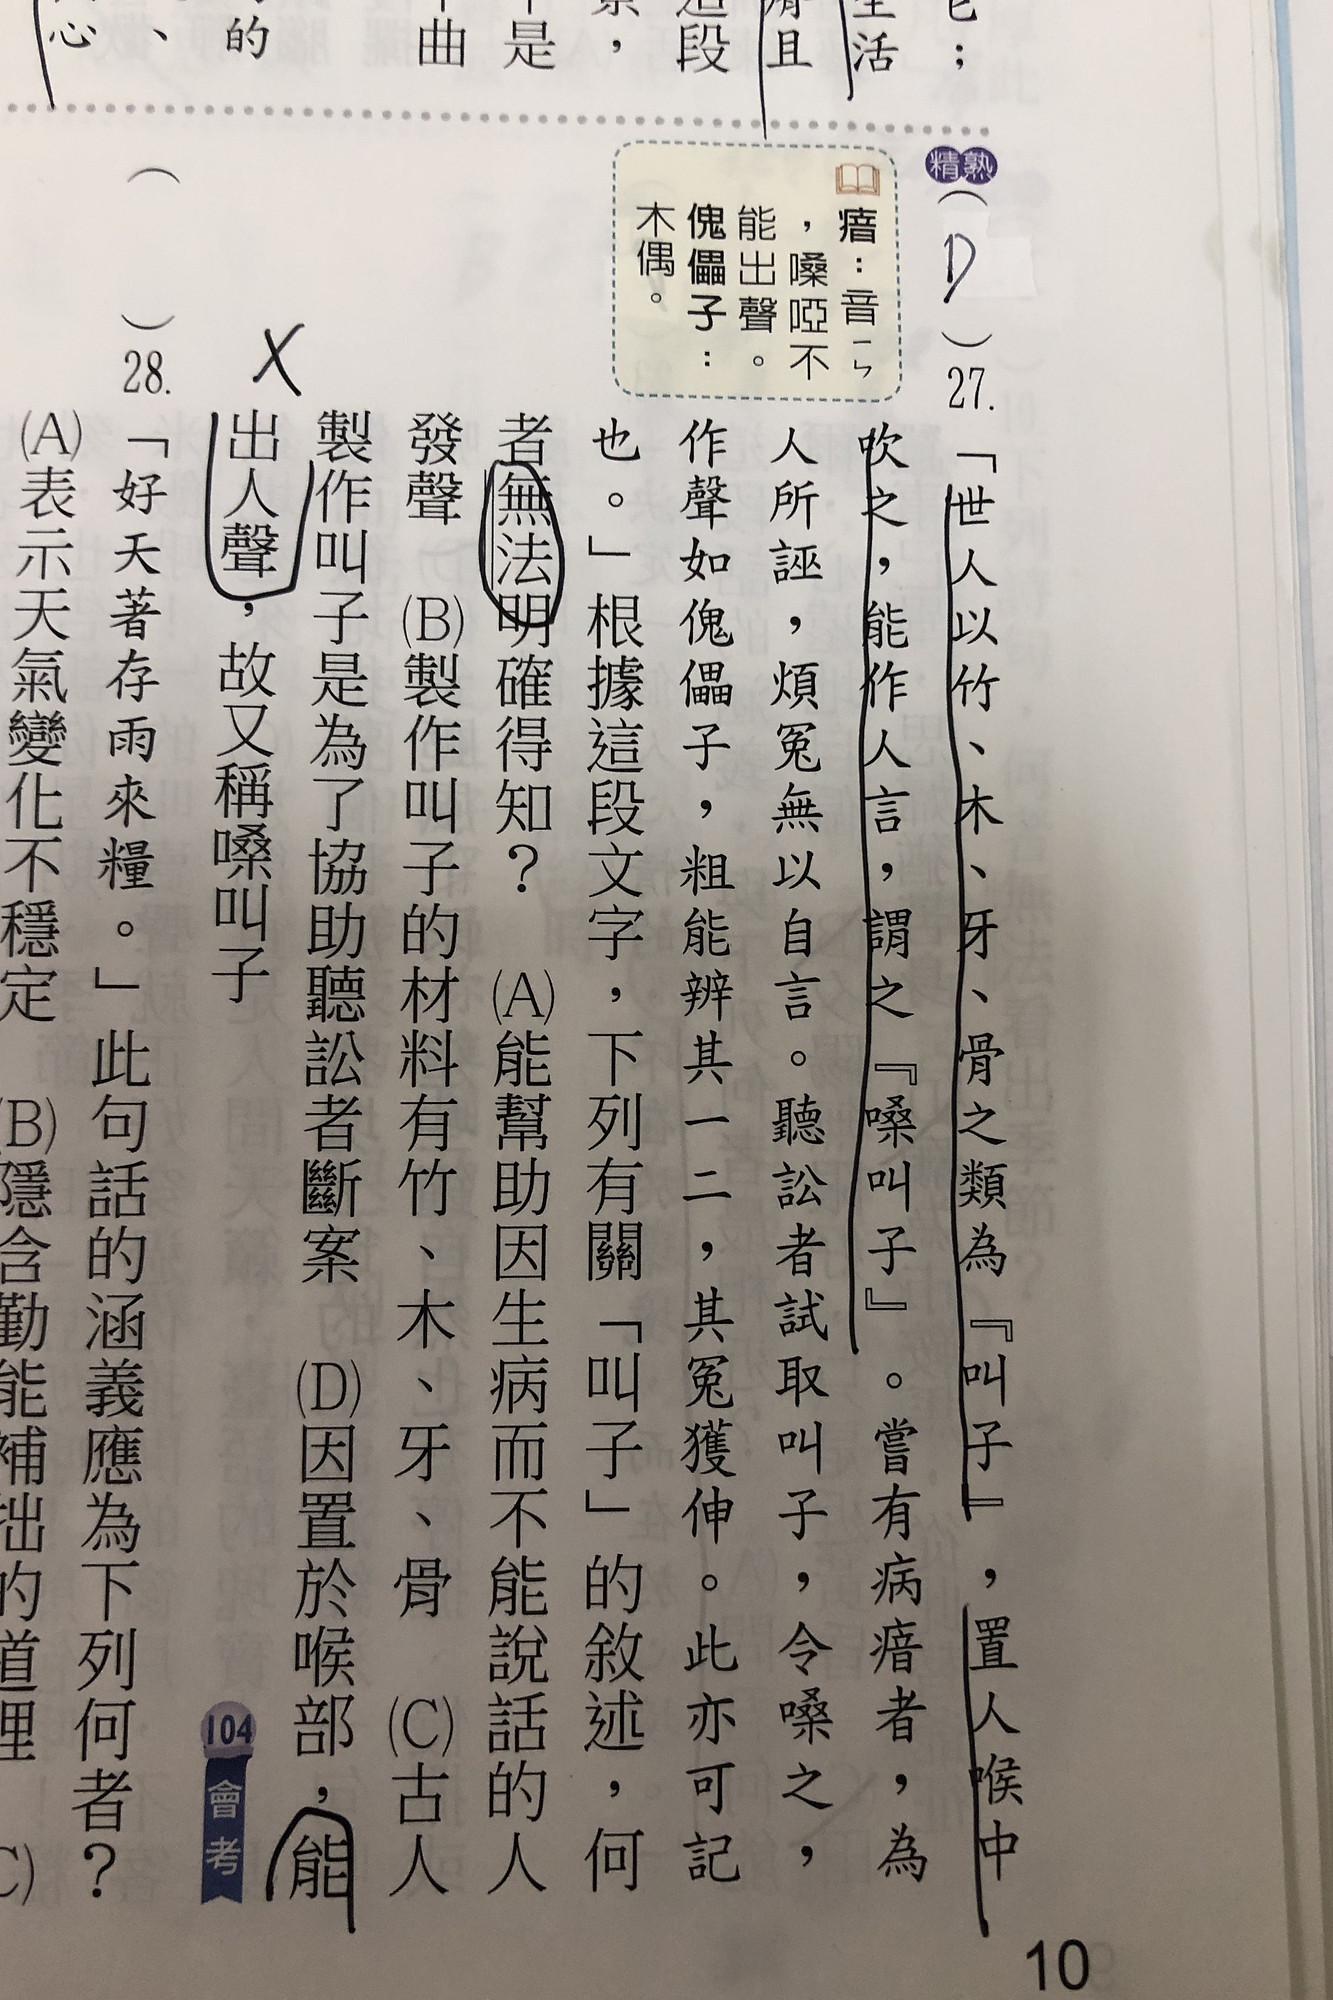 它；
生活
滑且
這段
景，
不是
半曲
的
、
心
精熟
（D）27.「世人以竹、木、牙、骨之類為『叫子』，置人喉中
吹之，能作人言，謂之『嗓叫子』。嘗有病瘖者，為
人所誣，煩冤無以自言。聽訟者試取叫子，令嗓之，
作聲如傀儡子，粗能辨其一二，其冤獲伸。此亦可記
也。」根據這段文字，下列有關「叫子」的敘述，何
者無法明確得知？ (A)能幫助因生病而不能說話的人
發聲 (B)製作叫子的材料有竹、木、牙、骨 (C)古人
製作叫子是為了協助聽訟者斷案 (D)因置於喉部，能
出人聲，故又稱嗓叫子
104會考
X
瘖：音ㄧㄣ
，嗓啞不
能出聲。
傀儡子：
木偶。
（ ）28.「好天著存雨來糧。」此句話的涵義應為下列何者？
(A)表示天氣變化不穩定 (B)隱含勤能補拙的道理 (C)
10